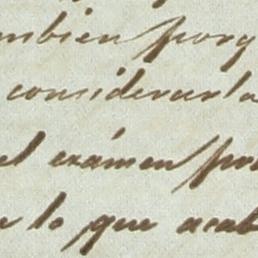 mbien porq
considerarla
el exámen pre
lo que acab